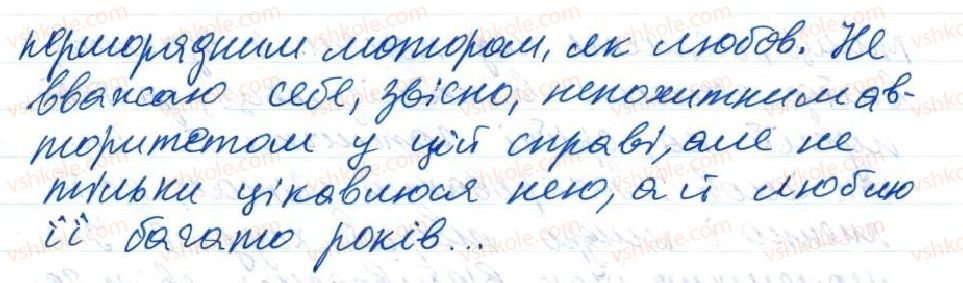 першорядним мотором, як любов. Не
вважаю себе, звісно, непохитним ав-
торитетом у цій справі, але не
тільки цікавлюся нею, а й люблю
її багато років...